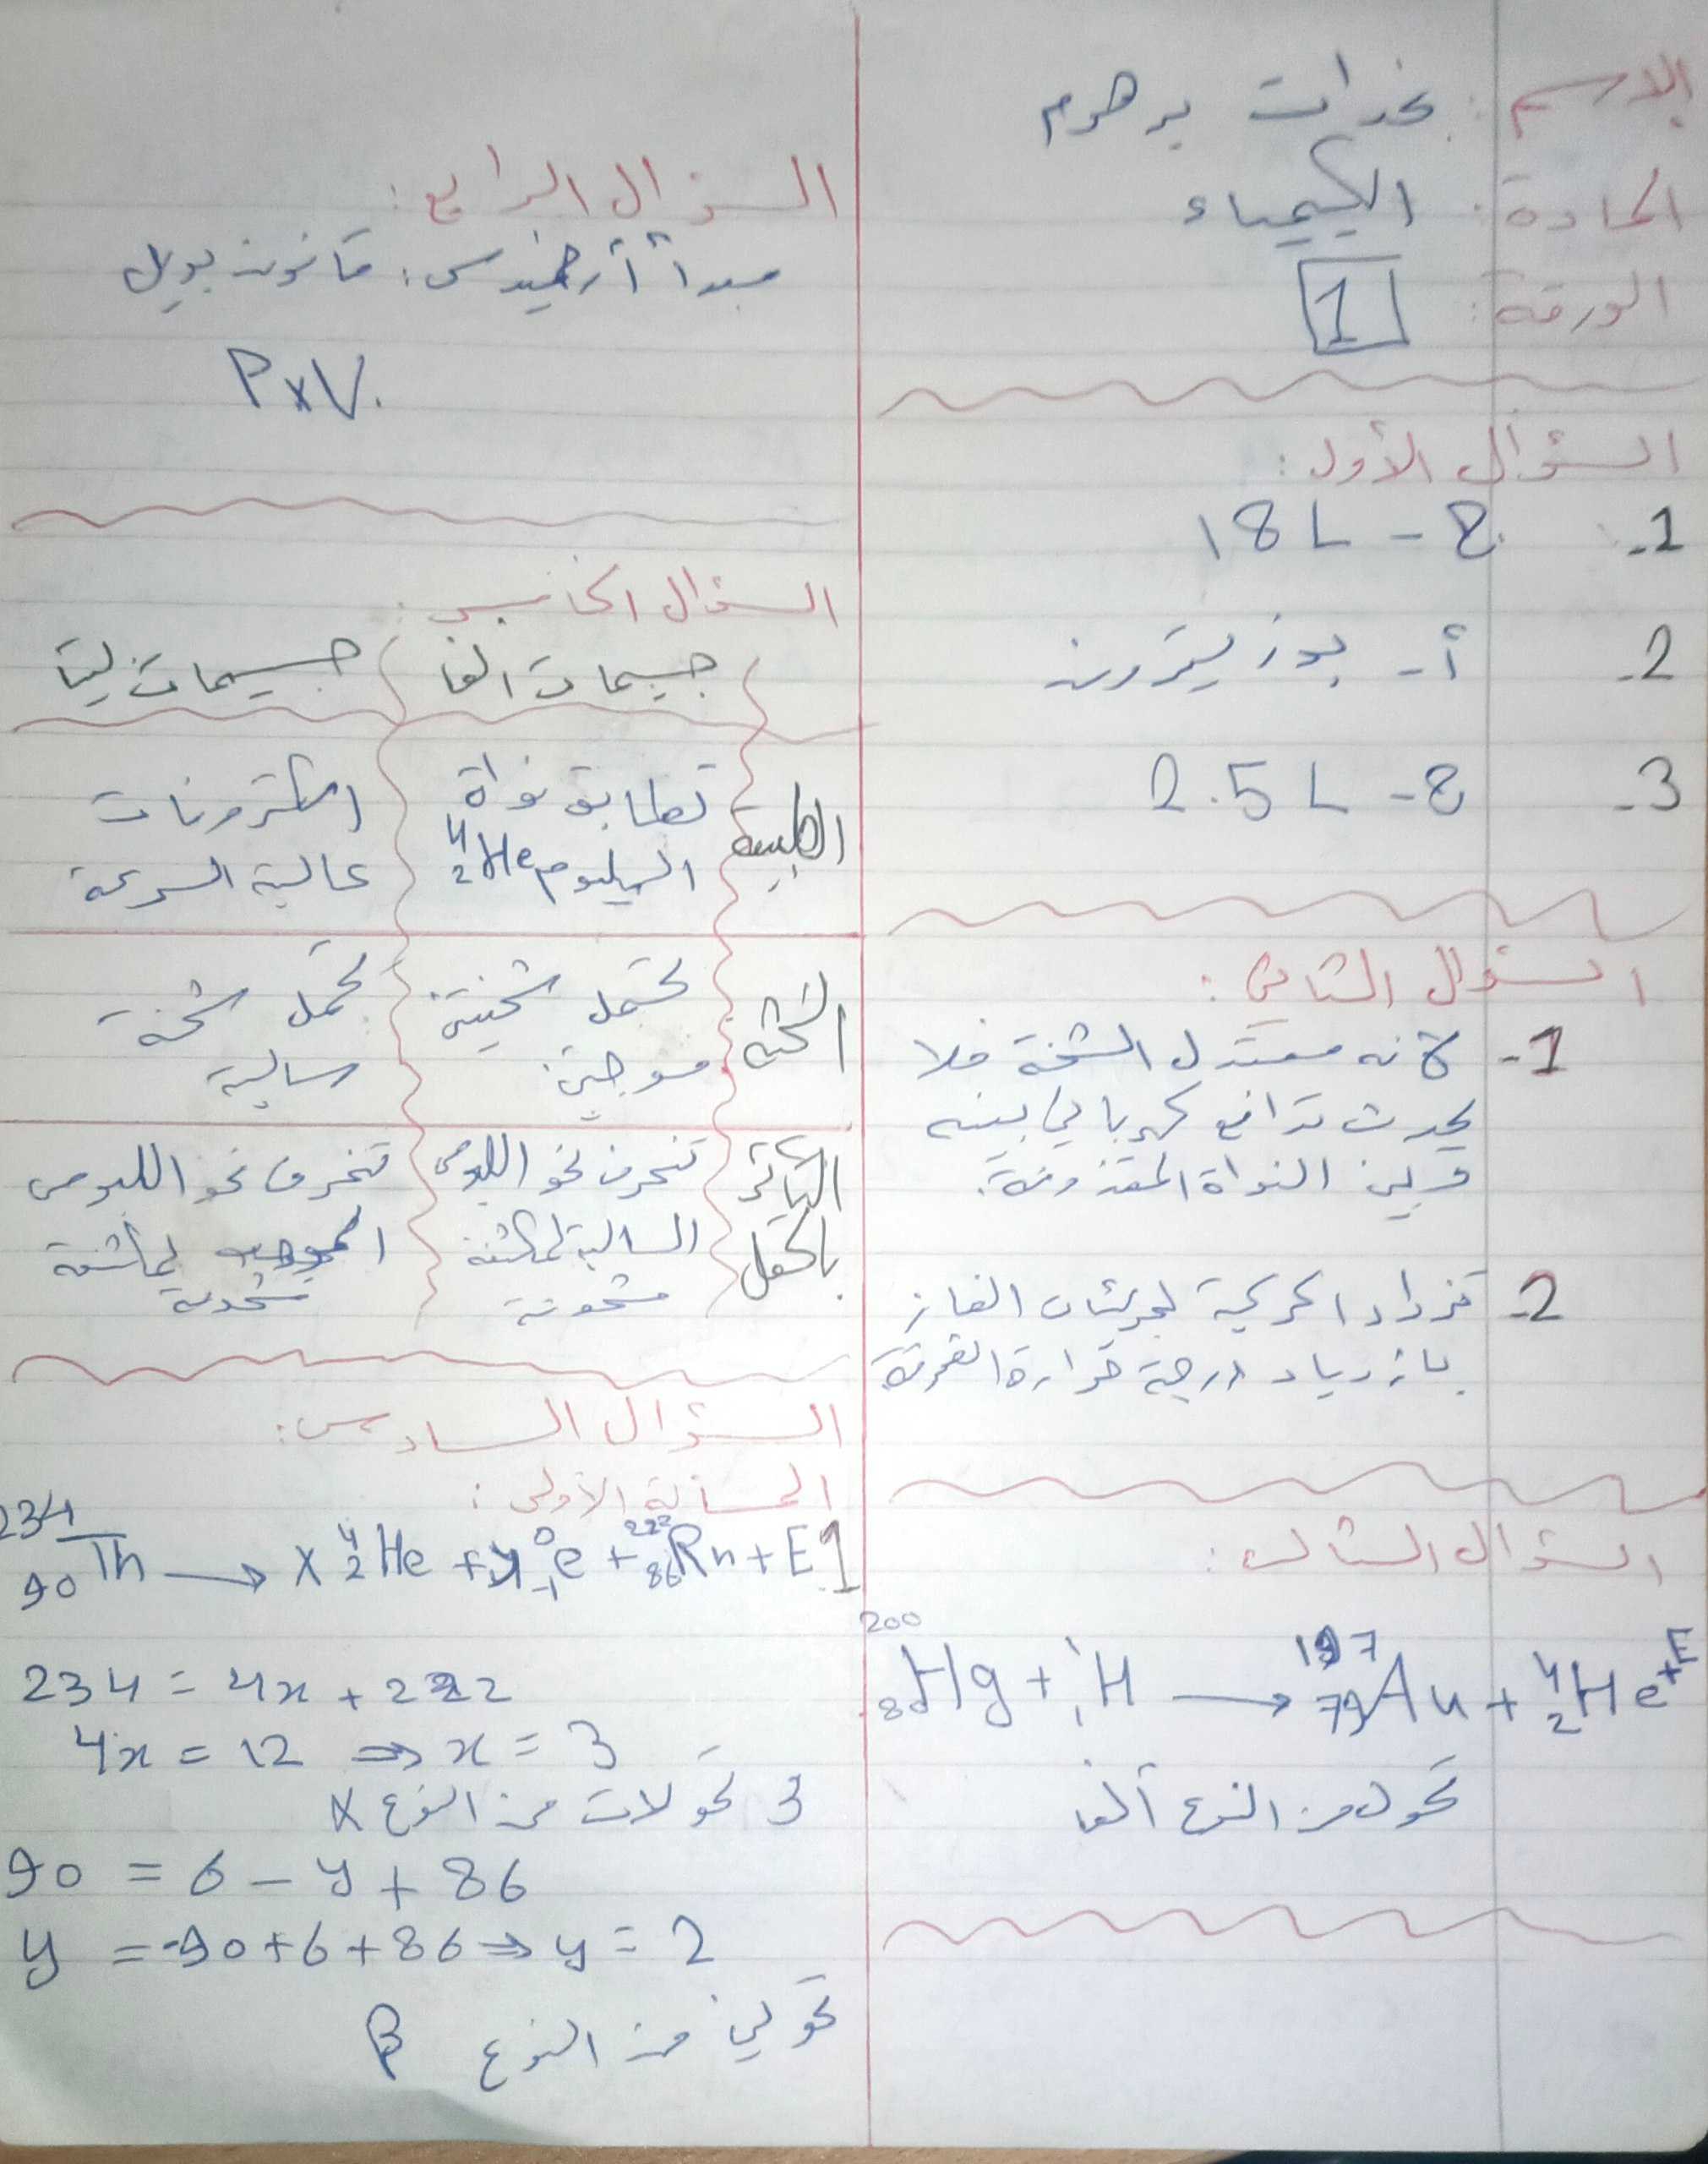 الاسم:
المادة: الكيمياء
الورقة: 1
السؤال الأول:
1- ج - 18 L
2- أ- بوزيترون
3- ج - 2.5 L
السؤال الثاني:
1- لأنه معتدل الشحنة فلا
يحدث تدافع كهربائي بينه
وبين النواة المقذوفة.
2- تزداد الحركية لجزيئات الغاز
بازدياد درجة حرارة الغرفة
السؤال الثالث:
²⁰⁰₈₀Hg + ¹₁H → ¹⁹⁷₇₉Au + ⁴₂He + E
تحول من النوع ألفا
السؤال الرابع:
مبدأ أرخميدس: قانون بويل
P×V.
السؤال الخامس:
جسيمات ألفا جسيمات بيتا
الطبيعة تطابق نواة الكترونات
الهيليوم ⁴₂He عالية السرعة
الشحنة تحمل شحنتين تحمل شحنة
موجبتين سالبة
التأثر تنحرف نحو اللبوس تنحرف نحو اللبوس
بالحقل السالب لمكثفة الموجب لمكثفة
مشحونة مشحونة
السؤال السادس:
المسألة الأولى:
1 ²³⁴₉₀Th → x ⁴₂He + y ⁰₋₁e + ²²²₈₆Rn + E
234 = 4x + 222
4x = 12 ⇒ x = 3
3 تحولات من النوع α
90 = 6 - y + 86
y = -90 + 6 + 86 ⇒ y = 2
تحولين من النوع β